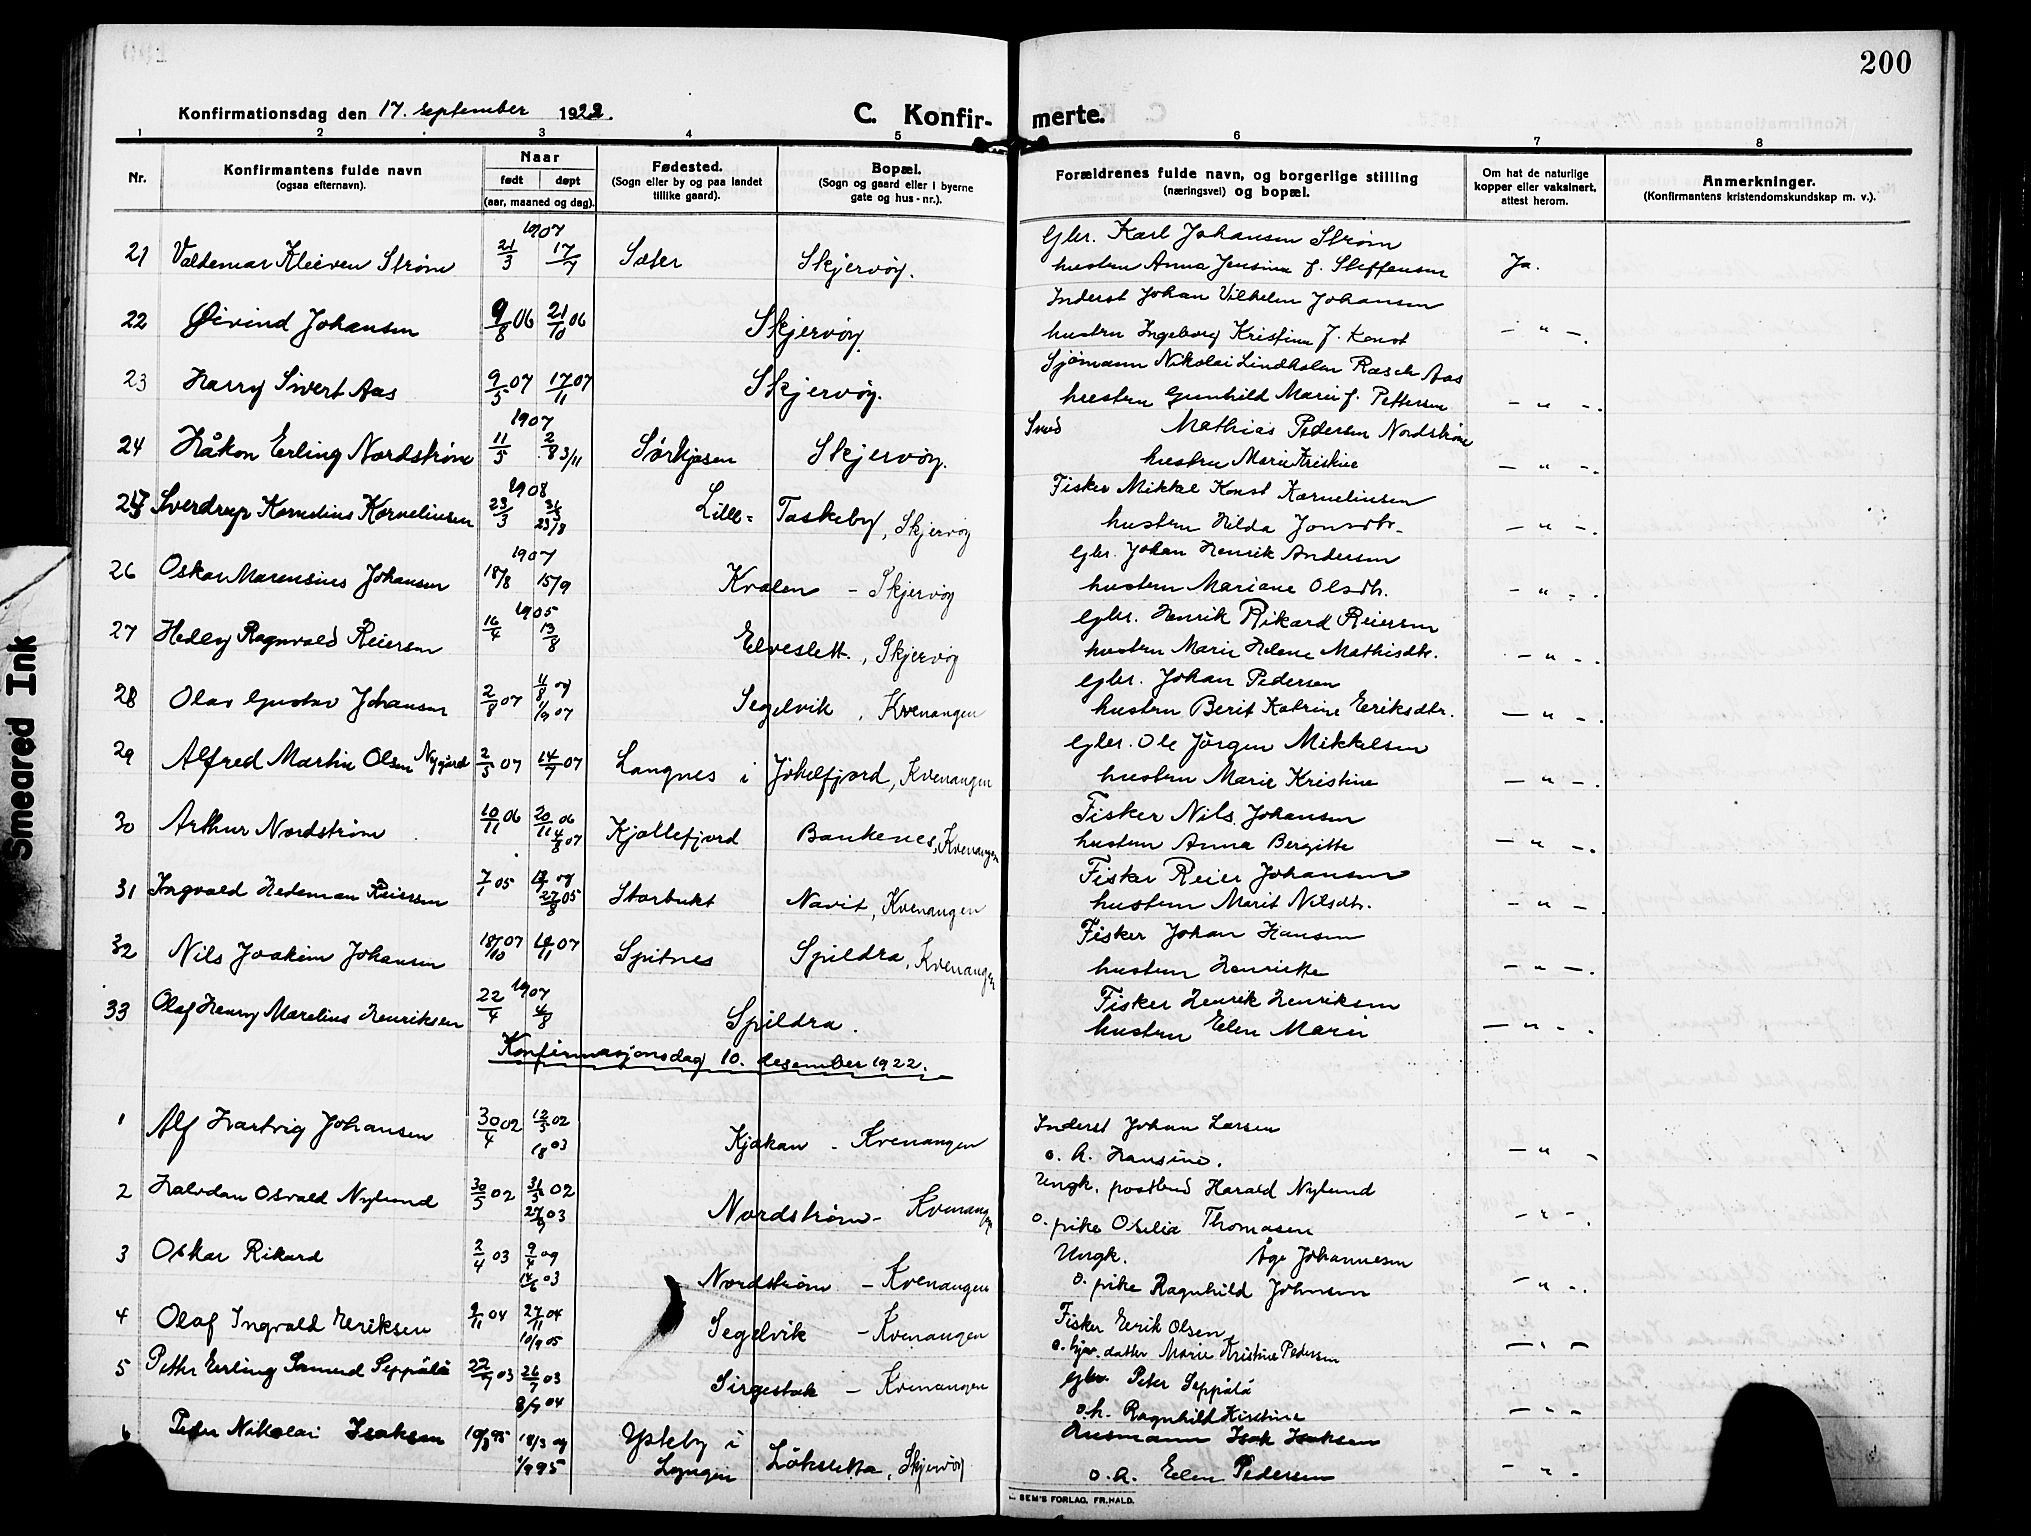 200
Konfirmationsdag den 17. september 1922.
C. Konfirmerte.
1 2 3 4 5 6 7 8
Nr.
Konfirmantens fulde navn
(ogsaa efternavn).
Naar
født døpt
(aar, maaned og dag).
Fødested.
(Sogn eller by og paa landet
tillike gaard).
Bopæl.
(Sogn og gaard eller i byerne
gate og hus-nr.).
Forældrenes fulde navn, og borgerlige stilling
(næringsvei) og bopæl.
Om hat de naturlige
kopper eller vaksinert,
attest herom.
Anmerkninger.
(Konfirmantens kristendomskundskap m. v.).
1907
Gbr. Karl Johansen Strøm
21 Valdemar Kleiven Strøm 21/3 17/7 Sæter Skjervøy. hustru Anna Jensine f. Steffensen Ja.
Inderst Johan Vilhelm Johansen
22 Øivind Johansen 9/8 06 21/10 06 Skjervøy. hustru Ingeborg Kristine f. Konst - " -.
Sjømann Nikolai Lindholm Rasch Aas
23 Harry Sivert Aas 9/5 07 17/11 07 Skjervøy. hustru Gunhild Marie f. Pettersen - " -.
1907
Smed Mathias Pedersen Nordstrøm
24 Håkon Erling Nordstrøm 11/5 2/8 3/11 Sørkjosen Skjervøy. hustru Marie Kristine - " -.
1908
Fisker Mikkel Konst Kornelinsen
25 Sverdrup Kornelius Kornelinsen 23/3 23/8 Lille= Taskeby, Skjervøy hustru Hilda Jonsdtr. - " -.
1907
Gbr. Johan Henrik Andersen
26 Oskar Marensius Johansen 18/8 15/9 Kvalen - Skjervøy hustru Mariane Olsdtr. - " -.
1905
Gbr. Henrik Rikard Reiersen
27 Hedley Ragnvald Reiersen 16/4 13/8 Elveslett., Skjervøy hustru Marie Helene Mathisdtr. - " -.
Gbr. Johan Pedersen
28 Olav Gustav Johansen 2/8 07 11/8 og 1/9 07 Segelvik, Kvenangen hustru Berit Katrine Eriksdtr. - " -.
Gbr. Ole Jørgen Mikkelsen
29 Alfred Martin Olsen Nygård 2/5 07 14/7 07 Langnes i Jøkelfjord, Kvenangen hustru Marie Kristine - " -.
Fisker Nils Johansen
30 Arthur Nordstrøm 10/11 06 20/11 06 4/8 07 Kjøllefjord Bankenes, Kvenangen hustru Anna Bergitte - " -.
Fisker Reier Johansen
31 Ingvald Hedeman Reiersen 7/1 05 og 27/8 05 Storbukt Navit, Kvenangen hustru Marit Nilsdtr. - " -
Fisker Johan Hansen
32 Nils Joakim Johansen 18/10 07 07 Spitnes Spildra, Kvenangen hustru Henrikke - " -.
1907
Fisker Henrik Henriksen
33 Olaf Henry Marelius Henriksen 22/4 4/8 Spildra. hustru Elen Marie - " -.
Konfirmasjonsdag 10. desember 1922.
Inderst Johan Larsen
1 Alf Hartvig Johansen 30/4 02 12/5 02 18 03 Kjøkan - Kvenangen o. h. Hansine. - " -
Ungk. postbud Harald Nylund
2 Halvdan Osvald Nylund 30/5 02 31/5 02 27/9 03 Nordstrøm - Kvenangen o. pike Otelia Thomasen - " -.
Ungk. Åge Johannesen
3 Oskar Rikard 2/4 03 9/4 og 14/6 03 Nordstrøm - Kvenangen o. pike Ragnhild Johnsen - " -.
Fisker Erik Olsen
4 Olaf Ingvald Eriksen 9/11 04 27/11 04 10/9 05 Segelvik - Kvenangen o. gbr. datter Marie Kristine Pedersen - " -
Gbr. Peter Seppälä
5 Petter Erling Seppälä 22/7 03 26/7 03 8/7 04 Sirgestak - Kvenangen o. h. Ragnhild Kirstine - " -
6 Peder Nikolai Isaksen 10/3 95 18/3 og 1/9 95 Ysteby i Lyngen Løkslette, Skjervøy Isak Isaksen
o. h. Elen Pedersen - " -.
SEM'S FORLAG, FR.HALD.
Smeared Ink